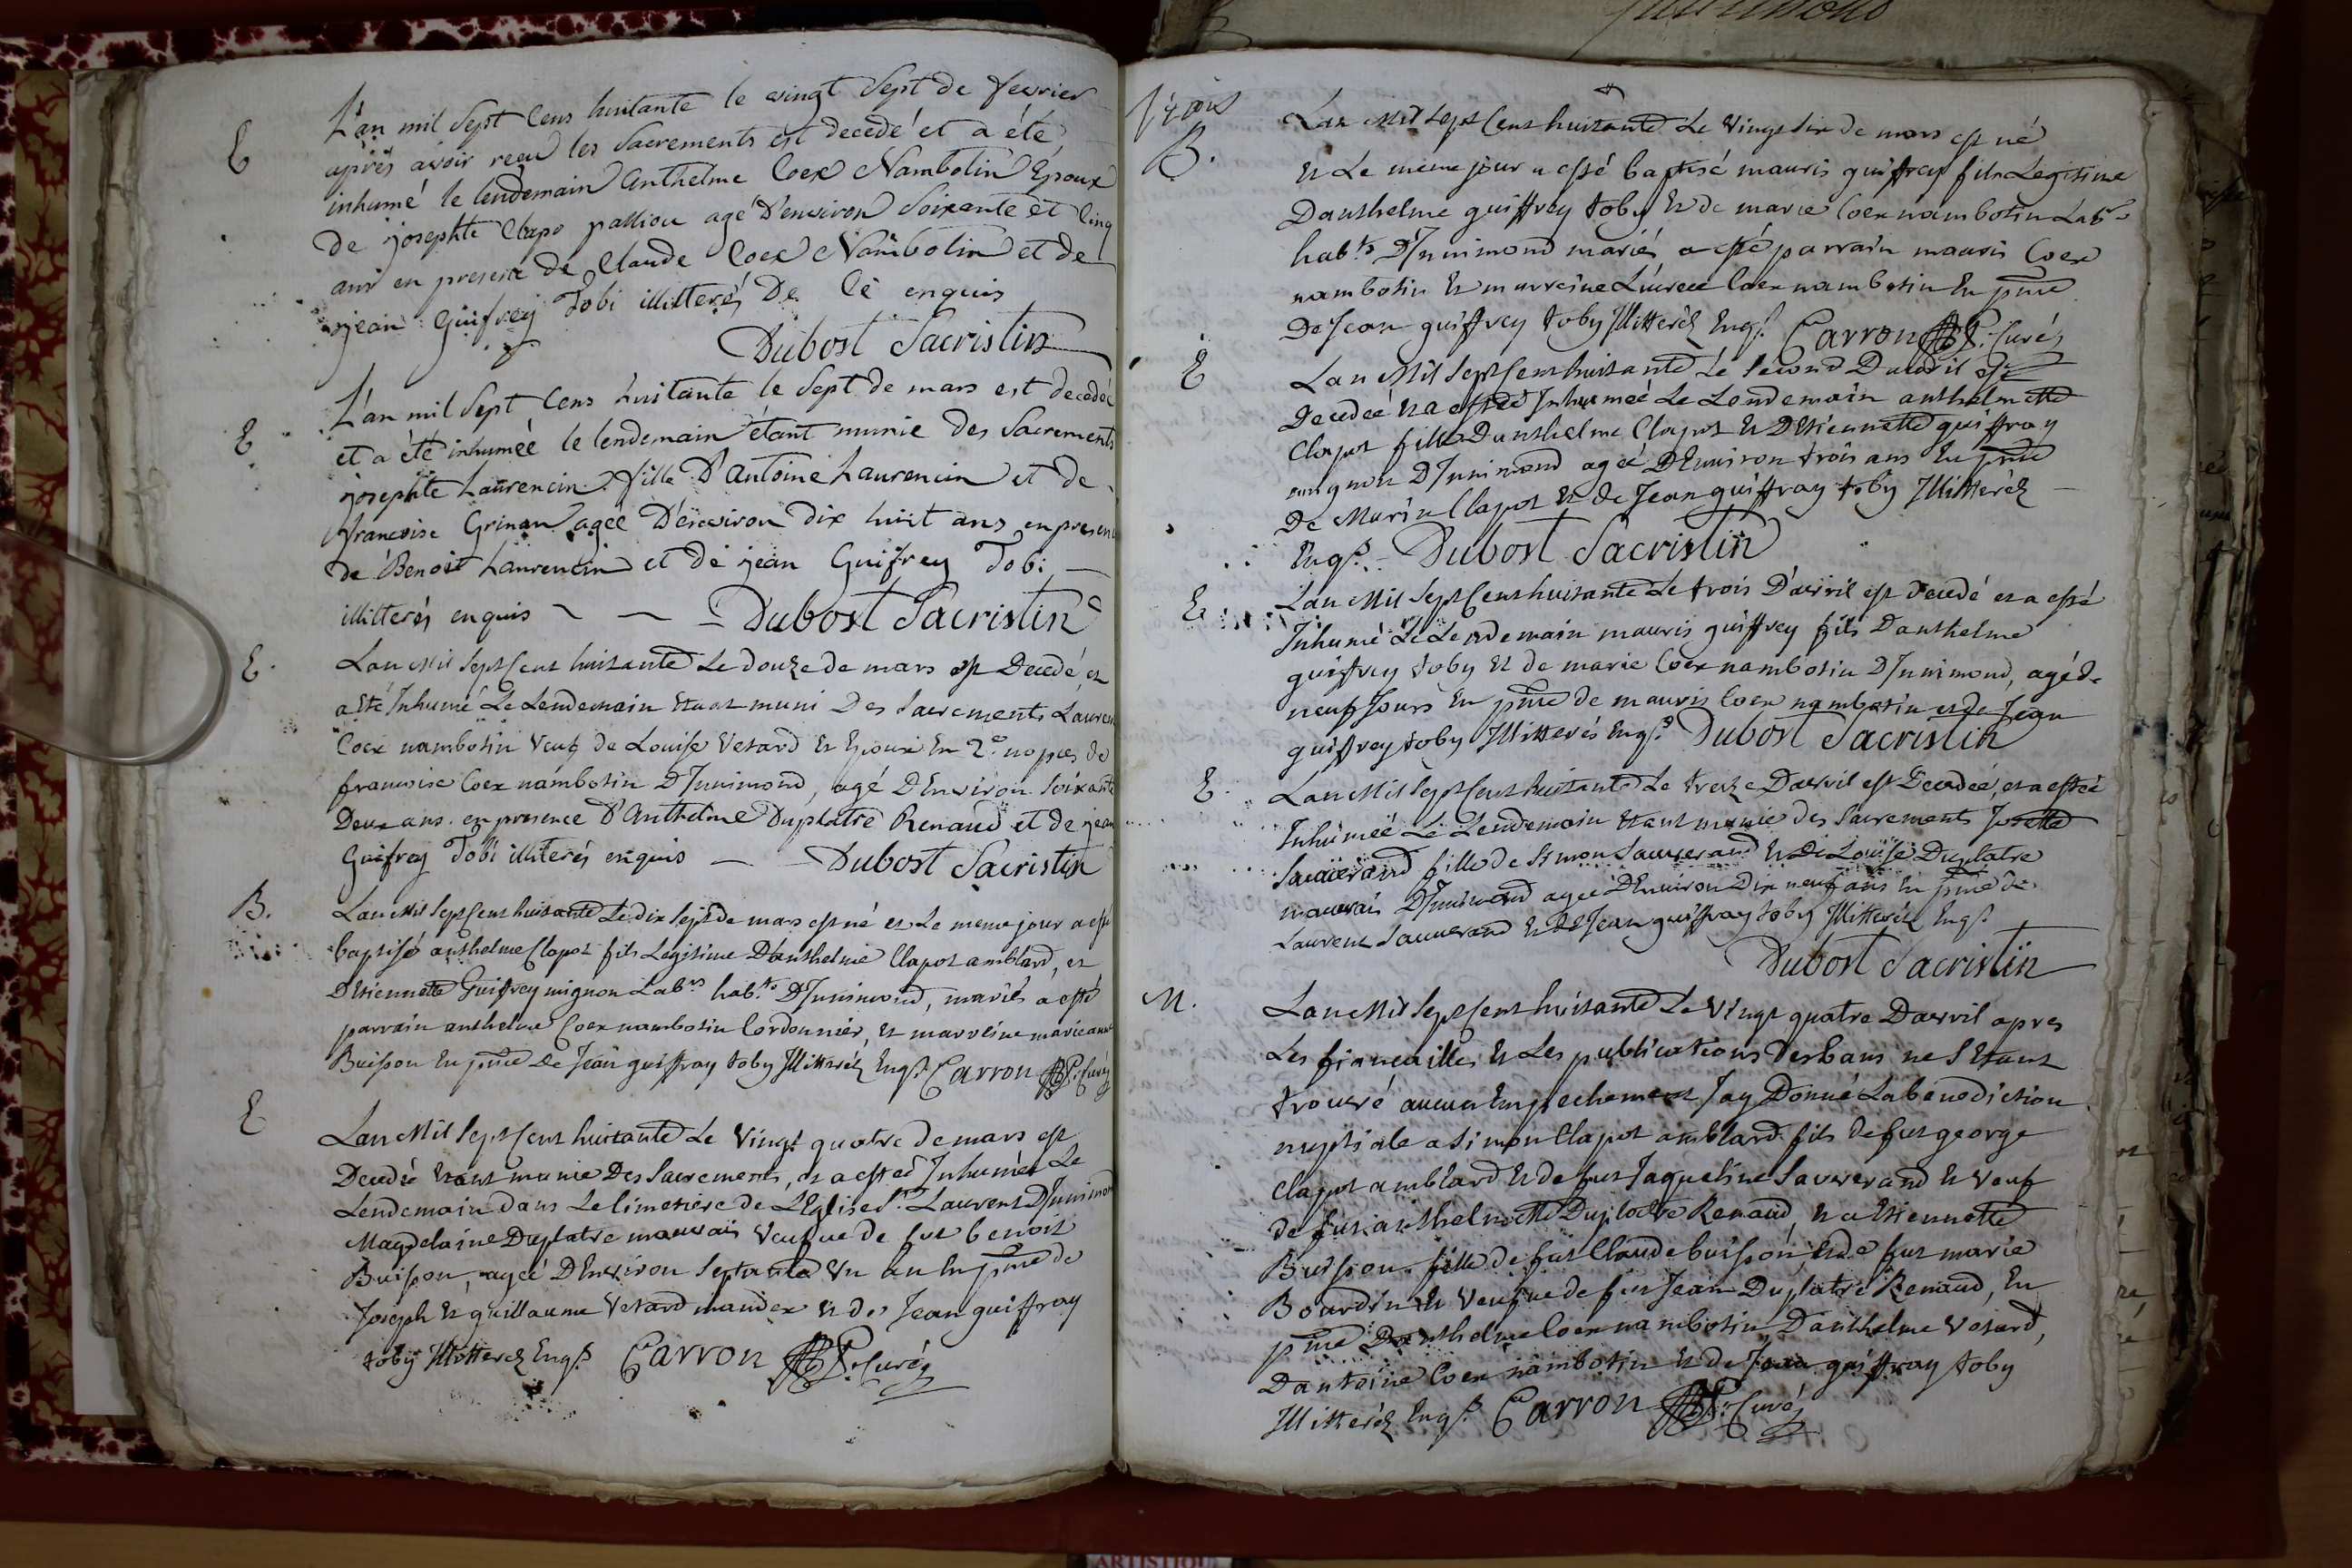 E
L'an mil Sept Cens huitante le vingt Sept de fevrier
après avoir reçu les Sacrements est decedé et a été
inhumé le lendemain Anthelme Coex Nambotin Epoux
de josephte Clapo palliou agé d'environ Soixante et Cinq
ans en presence de Claude Coex Nambotin et de
jean Guifrey Tobi illitterés De Ce enquis
Dubost Sacristin
E
L'an mil Sept Cens huitante le Sept de mars est decedée
et a été inhumée le lendemain étant munie des Sacrements
josephte Laurencin fille D'Antoine Laurencin et de
francoise Grinan agée D'environ dix huit ans en presence
de Benoit Laurencin et de jean Guifrey Tobi
illitterés enquis Dubost Sacristin
E
Lan Mil Sept Cent huitante Le douze de mars est Decedé, et
a Eté Inhumé Le Lendemain Etant muni Des Sacrements Laurent
Coex nambotin Veuf de Louise Vetard Et Epoux En 2e nopces de
francoise Coex nambotin DJunimond, agé DEnviron Soixante
Deux ans. en presence D'Anthelme Duplatre Renaud et de jean
Guifrey Tobi illiterés enquis Dubost Sacristin
B.
Lan Mil Sept Cent huitante Le dix Sept de mars est né et Le meme jour a esté
baptisé anthelme Clapot fils Legitime Danthelme Clapot amblard, et
DEtiennette Guiffrey mignon Labrs habts DJunimond, mariés a esté
parrain anthelme Coex nambotin Cordonnier, et marreine marie anne
Buisson En pnce de Jean guiffray toby Illitteréz Enqs Carron Curé
E
Lan Mil Sept Cent huitante Le Vingt quatre de mars est
Decedée Etant munie Des Sacrements, et a estée Inhumée Le
Lendemain dans Le Cimetiere de LEglise St Laurent DJunimond
Magdelaine Duplatre mauvais Veufve de fut benoit
Buisson, agée DEnviron Septante Un an En pnce de
Joseph Et guillaume Vetard mander Et de Jean guiffray
toby Illitteréz Enqs Carron Curé
B.
Lan Mil Sept Cent huitante Le Vingt Six de mars est né
Et Le meme jour a esté baptisé mauris guiffrey fils Legitime
Danthelme guiffrey toby Et de marie Coex nambotin Labrs
habts DJunimond mariés a esté parrain mauris Coex
nambotin Et marreine Lucrece Coex nambotin En pnce
De Jean guiffrey toby Illitteréz Enqs Carron Curé
E
Lan Mil Sept Cent huitante Le Second Davril est
Decedée Et a estée Inhumée Le Lendemain anthelmette
Clapot fille Danthelme Clapot Et DEtiennette guiffray
mignon DJunimond agée DEnviron trois ans En pnce
De Marin Clapot Et de Jean guiffray toby Illitteréz
Enqs Dubost Sacristin
E
Lan Mil Sept Cent huitante Le trois Davril est Decedé et a esté
Inhumé Le Lendemain mauris guiffrey fils Danthelme
guiffrey toby Et de marie Coex nambotin DJunimond, agé de
neuf Jours En pnce de mauris Coex nambotin et de Jean
guiffrey toby Illitterés Enqs Dubost Sacristin
E
Lan Mil Sept Cent huitante Le treize Davril est Decedée, et a estée
Inhumée Le Lendemain Etant munie des Sacrements Josette
Sauverand fille de Simon Sauverand Et De Louise Duplatre
mauvais DJunimond agée DEnviron Dix neuf ans En pnce de
Laurent Sauverand Et De Jean guiffray toby Illitteréz Enqs
Dubost Sacristin
M.
Lan Mil Sept Cent huitante Le Vingt quatre Davril apres
Les fiancailles Et Les publications Des bans ne S'Etant
trouvé aucun Empechement Jay Donné La benediction
nuptiale a Simon Clapot amblard fils de fut george
Clapot amblard Et de fut Jaqueline Sauverand Et Veuf
de fut anthelmette Duplatre Renaud, Et a Etiennette
Buisson fille de fut Claude buisson, Et de fut marie
Boardin Et Veufve de fut Jean Duplatre Renaud, En
pnce Danthelme Coex nambotin Danthelme Vetard,
Dantoine Coex nambotin Et de Jean guiffray toby
Illitteréz Enqs Carron Curé